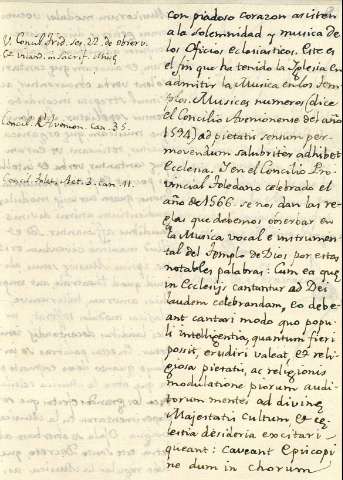 V. Concil. Trid. ses. 22. de observ.
Et vitand. in sacrif. Miss.
Concil. Avenion. can. 35.
Concil. Tolet. Act. 3. can. 11.
con piadoso corazon asisten
a la solemnidad y musica de
los Oficios eclesiasticos. Este es
el fin que ha tenido la Iglesia en
admitir la Musica en los Tem-
plos. Musicos numeros (dice
el Concilio Avenionense del año
1594) ad pietatis sensum per-
movendum salubriter adhibet
Ecclesia. Y en el Concilio Pro-
vincial Toledano celebrado el
año de 1566. se nos dan las re-
glas que debemos observar en
la Musica vocal e instrumen-
tal del Templo de Dios por estas
notables palabras: Cum ea quę
in Ecclesijs cantantur ad Dei
laudem celebrandam, eo debe-
ant cantari modo quo popu-
li intelligentia, quantum fieri
possit, erudiri valeat, et reli-
giosa pietatis, ac religionis
modulatione piorum audi-
torum mentes ad divinę
Majestatis cultum, et cę-
lestia desideria excitari
queant: caveant Episcopi
ne dum in chorum